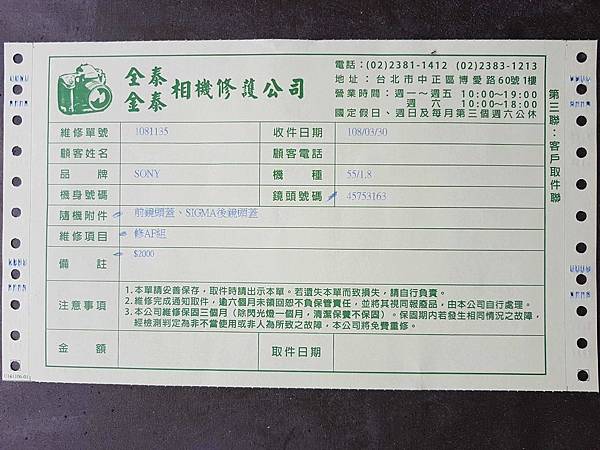 全泰
金泰
相機修護公司
電話：(02)2381-1412 (02)2383-1213
地址：台北市中正區博愛路60號1樓
營業時間：週一～週五 10:00～19:00
週六 10:00～18:00
國定假日、週日及每月第三個週六公休
第三聯：客戶取件聯
維修單號 1081135 收件日期 108/03/30
顧客姓名 顧客電話
品牌 SONY 機種 55/1.8
機身號碼 鏡頭號碼 45753163
隨機附件 前鏡頭蓋、SIGMA後鏡頭蓋
維修項目 修AF組
備註 $2000
注意事項
1.本單請妥善保存，取件時請出示本單。若遺失本單而致損失，請自行負責。
2.維修完成通知取件，逾六個月未領回恕不負保管責任，並將其視同報廢品，由本公司自行處理。
3.本公司維修保固三個月（除閃光燈一個月，清潔保養不保固）。保固期內若發生相同情況之故障，
經檢測判定為非不當使用或非人為所致之故障，本公司將免費重修。
金額 取件日期